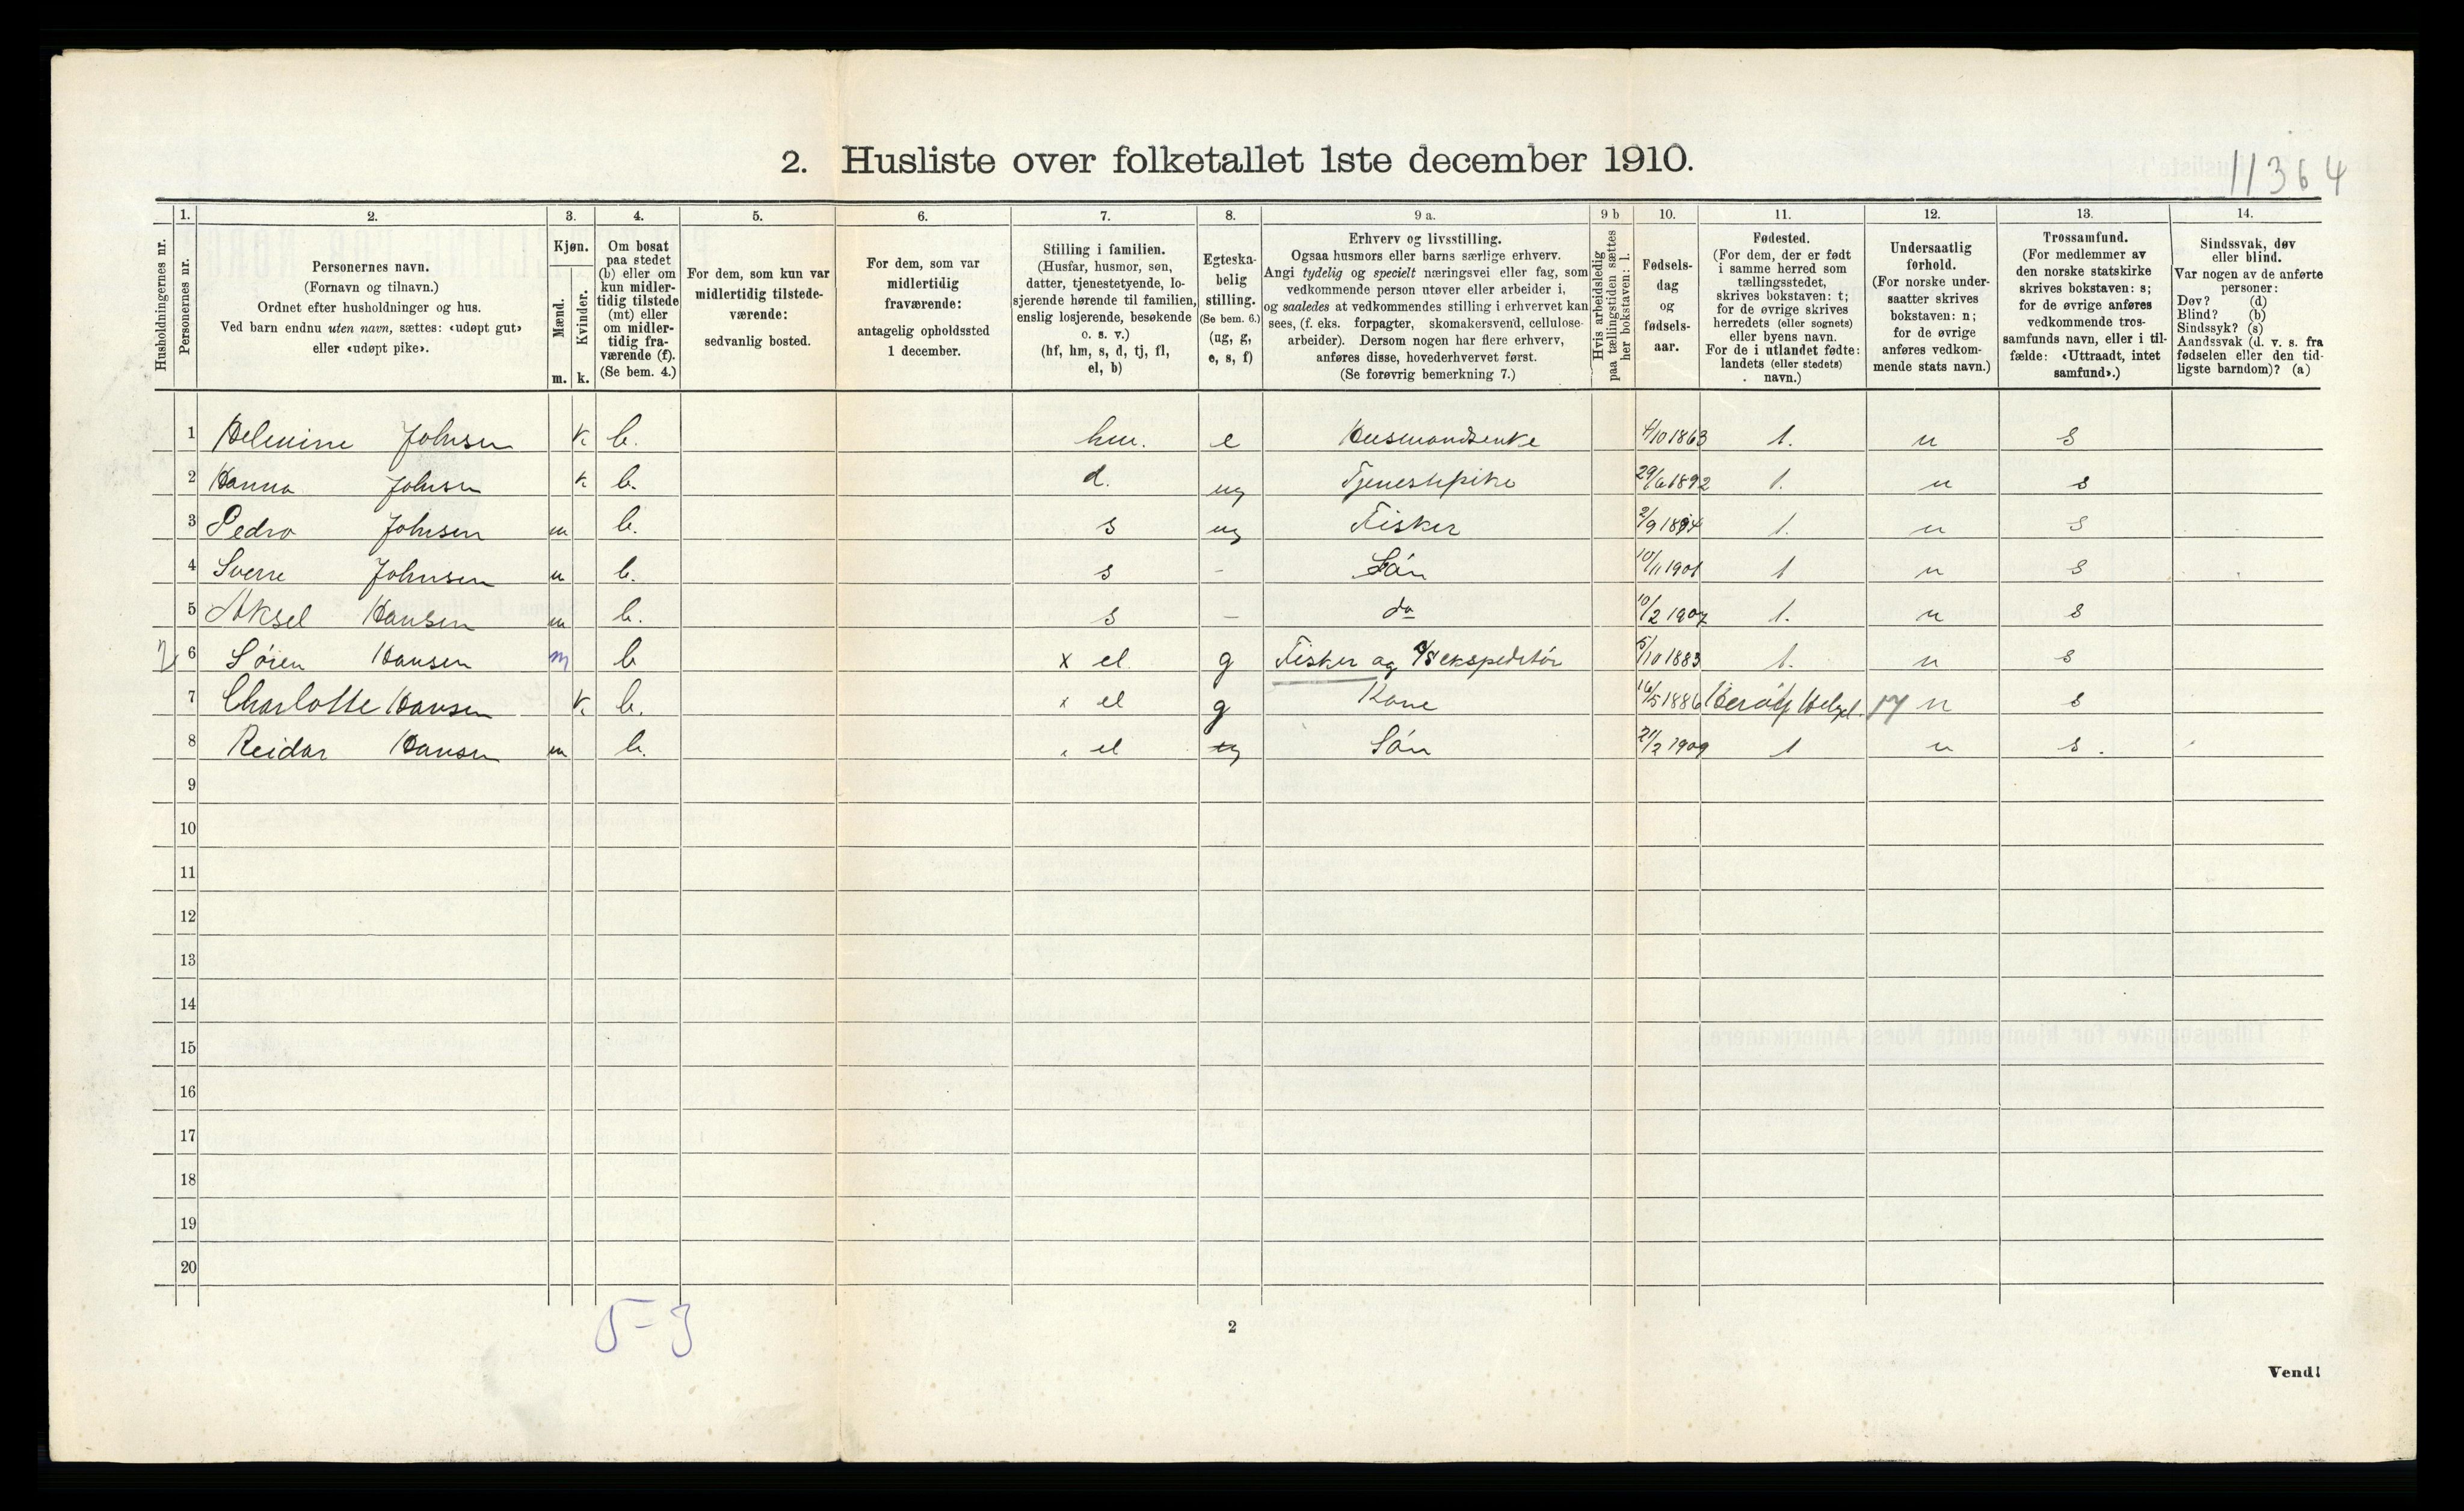 2. Husliste over folketallet 1ste december 1910.
11364
Husholdningernes nr.
1. Personernes nr.
2. Personernes navn. (Fornavn og tilnavn.) Ordnet efter husholdninger og hus. Ved barn endnu uten navn, sættes: «udøpt gut» eller «udøpt pike».
3. Kjøn. Mænd. m. Kvinder. k.
4. Om bosat paa stedet (b) eller om kun midlertidig tilstede (mt) eller om midlertidig fraværende (f). (Se bem. 4.)
5. For dem, som kun var midlertidig tilstedeværende: sedvanlig bosted.
6. For dem, som var midlertidig fraværende: antagelig opholdssted 1 december.
7. Stilling i familien. (Husfar, husmor, søn, datter, tjenestetyende, losjerende hørende til familien, enslig losjerende, besøkende o. s. v.) (hf, hm, s, d, tj, fl, el, b)
8. Egteskabelig stilling. (Se bem. 6.) (ug, g, e, s, f)
9 a. Erhverv og livsstilling. Ogsaa husmors eller barns særlige erhverv. Angi tydelig og specielt næringsvei eller fag, som vedkommende person utøver eller arbeider i, og saaledes at vedkommendes stilling i erhvervet kan sees, (f. eks. forpagter, skomakersvend, cellulosearbeider). Dersom nogen har flere erhverv, anføres disse, hovederhvervet først. (Se forøvrig bemerkning 7.)
9 b Hvis arbeidsledig paa tællingstiden sættes her bokstaven: l.
10. Fødselsdag og fødselsaar.
11. Fødested. (For dem, der er født i samme herred som tællingsstedet, skrives bokstaven: t; for de øvrige skrives herredets (eller sognets) eller byens navn. For de i utlandet fødte: landets (eller stedets) navn.)
12. Undersaatlig forhold. (For norske undersaatter skrives bokstaven: n; for de øvrige anføres vedkommende stats navn.)
13. Trossamfund. (For medlemmer av den norske statskirke skrives bokstaven: s; for de øvrige anføres vedkommende trossamfunds navn, eller i tilfælde: «Uttraadt, intet samfund».)
14. Sindssvak, døv eller blind. Var nogen av de anførte personer: Døv? (d) Blind? (b) Sindssyk? (s) Aandssvak (d. v. s. fra fødselen eller den tidligste barndom)? (a)
1 Helmine Johnsen k b. hm. e Husmandsenke 4/10 1863 t. n s
2 Hanna Johnsen k b. d. ug Tjenestepike 29/6 1892 t. n s
3 Pedro Johnsen m b. s ug Fisker 2/9 1894 t. n s
4 Sverre Johnsen m b. s - Søn 10/11 1901 t n s
5 Aksel Hansen m b. s - do 10/2 1907 t. n s
2 6 Søren Hansen m b x el. g Fisker og D/S ekspeditør 5/10 1883 t. n s
7 Charlotte Hansen k b. x el g Kone 16/5 1886 Herøy Helgel. 17 n s
8 Reidar Hansen m b. x el ug Søn 21/2 1909 t n s.
9
10
11
12
13
14
15
16
17
18
19
20
5-3
2
Vend!